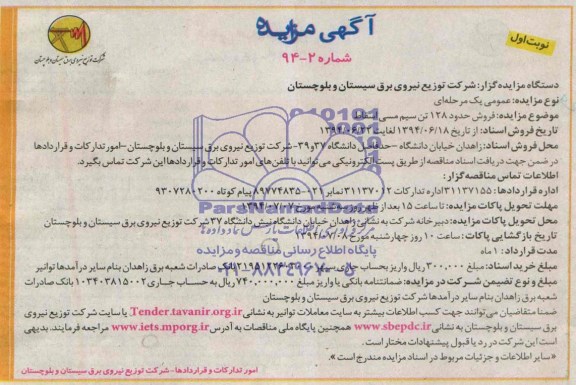 آگهی مزایده
شماره ۲-۹۴
نوبت اول
شرکت توزیع نیروی برق سیستان و بلوچستان
دستگاه مزایده گزار: شرکت توزیع نیروی برق سیستان و بلوچستان
نوع مزایده: عمومی یک مرحله‌ای
موضوع مزایده: فروش حدود ۱۲۸ تن سیم مسی اسقاط
تاریخ فروش اسناد: از تاریخ ۱۳۹۴/۰۶/۱۸ لغایت ۱۳۹۴/۰۶/۲۲
محل فروش اسناد: زاهدان خیابان دانشگاه -حدفاصل دانشگاه ۳۷و۳۹- شرکت توزیع نیروی برق سیستان و بلوچستان -امور تدارکات و قراردادها
در ضمن جهت دریافت اسناد مناقصه از طریق پست الکترونیکی می‌توانید با تلفن‌های امور تدارکات و قراردادها این شرکت تماس بگیرد.
اطلاعات تماس مناقصه گزار:
اداره قراردادها: ۳۱۱۳۷۱۵۵ اداره تدارکات ۳۱۱۳۷۰۱۲ نمابر ۰۲۱-۸۹۷۷۴۸۳۵ پیام کوتاه ۹۳۰۷۲۸۰۲۰۰
مهلت تحویل پاکات مزایده: تا ساعت ۱۵ بعد از ظهر روز سه شنبه مورخ ۱۳۹۴/۰۷/۰۷
محل تحویل پاکات مزایده: دبیرخانه شرکت به نشانی زاهدان خیابان دانشگاه نبش دانشگاه ۳۷ شرکت توزیع نیروی برق سیستان و بلوچستان
تاریخ بازگشایی پاکات: ساعت ۱۰ روز چهارشنبه مورخ ۱۳۹۴/۰۷/۰۸
مدت قرارداد: ۱ ماه
مبلغ خرید اسناد: ۳۰۰,۰۰۰ ریال واریز بحساب جاری سپهر بانک صادرات شعبه برق زاهدان بنام سایر درآمدها توانیر
مبلغ و نوع تضمین شرکت در مزایده: ضمانتنامه بانکی یا واریز مبلغ ۷۴۰,۰۰۰,۰۰۰ ریال به حساب جاری ۰۱۰۳۴۰۳۸۱۵۰۰۲ بانک صادرات
شعبه برق زاهدان بنام سایر درآمدها شرکت توزیع نیروی برق سیستان و بلوچستان
ضمنا متقاضیان می‌توانند جهت کسب اطلاعات بیشتر به سایت معاملات توانیر به نشانی Tender.tavanir.org.ir یا سایت شرکت توزیع نیروی
برق سیستان و بلوچستان به نشانی www.sbepdc.ir همچنین پایگاه ملی مناقصات به آدرس www.iets.mporg.ir مراجعه فرمایند. بدیهی
است این شرکت در رد یا قبول پیشنهادات مختار است.
«سایر اطلاعات و جزئیات مربوط در اسناد مزایده مندرج است».
امور تدارکات و قراردادها - شرکت توزیع نیروی برق سیستان و بلوچستان
ParsNamadData
پایگاه اطلاع رسانی مناقصه و مزایده
۰۲۱-۸۸۳۴۹۶۷۰-۵